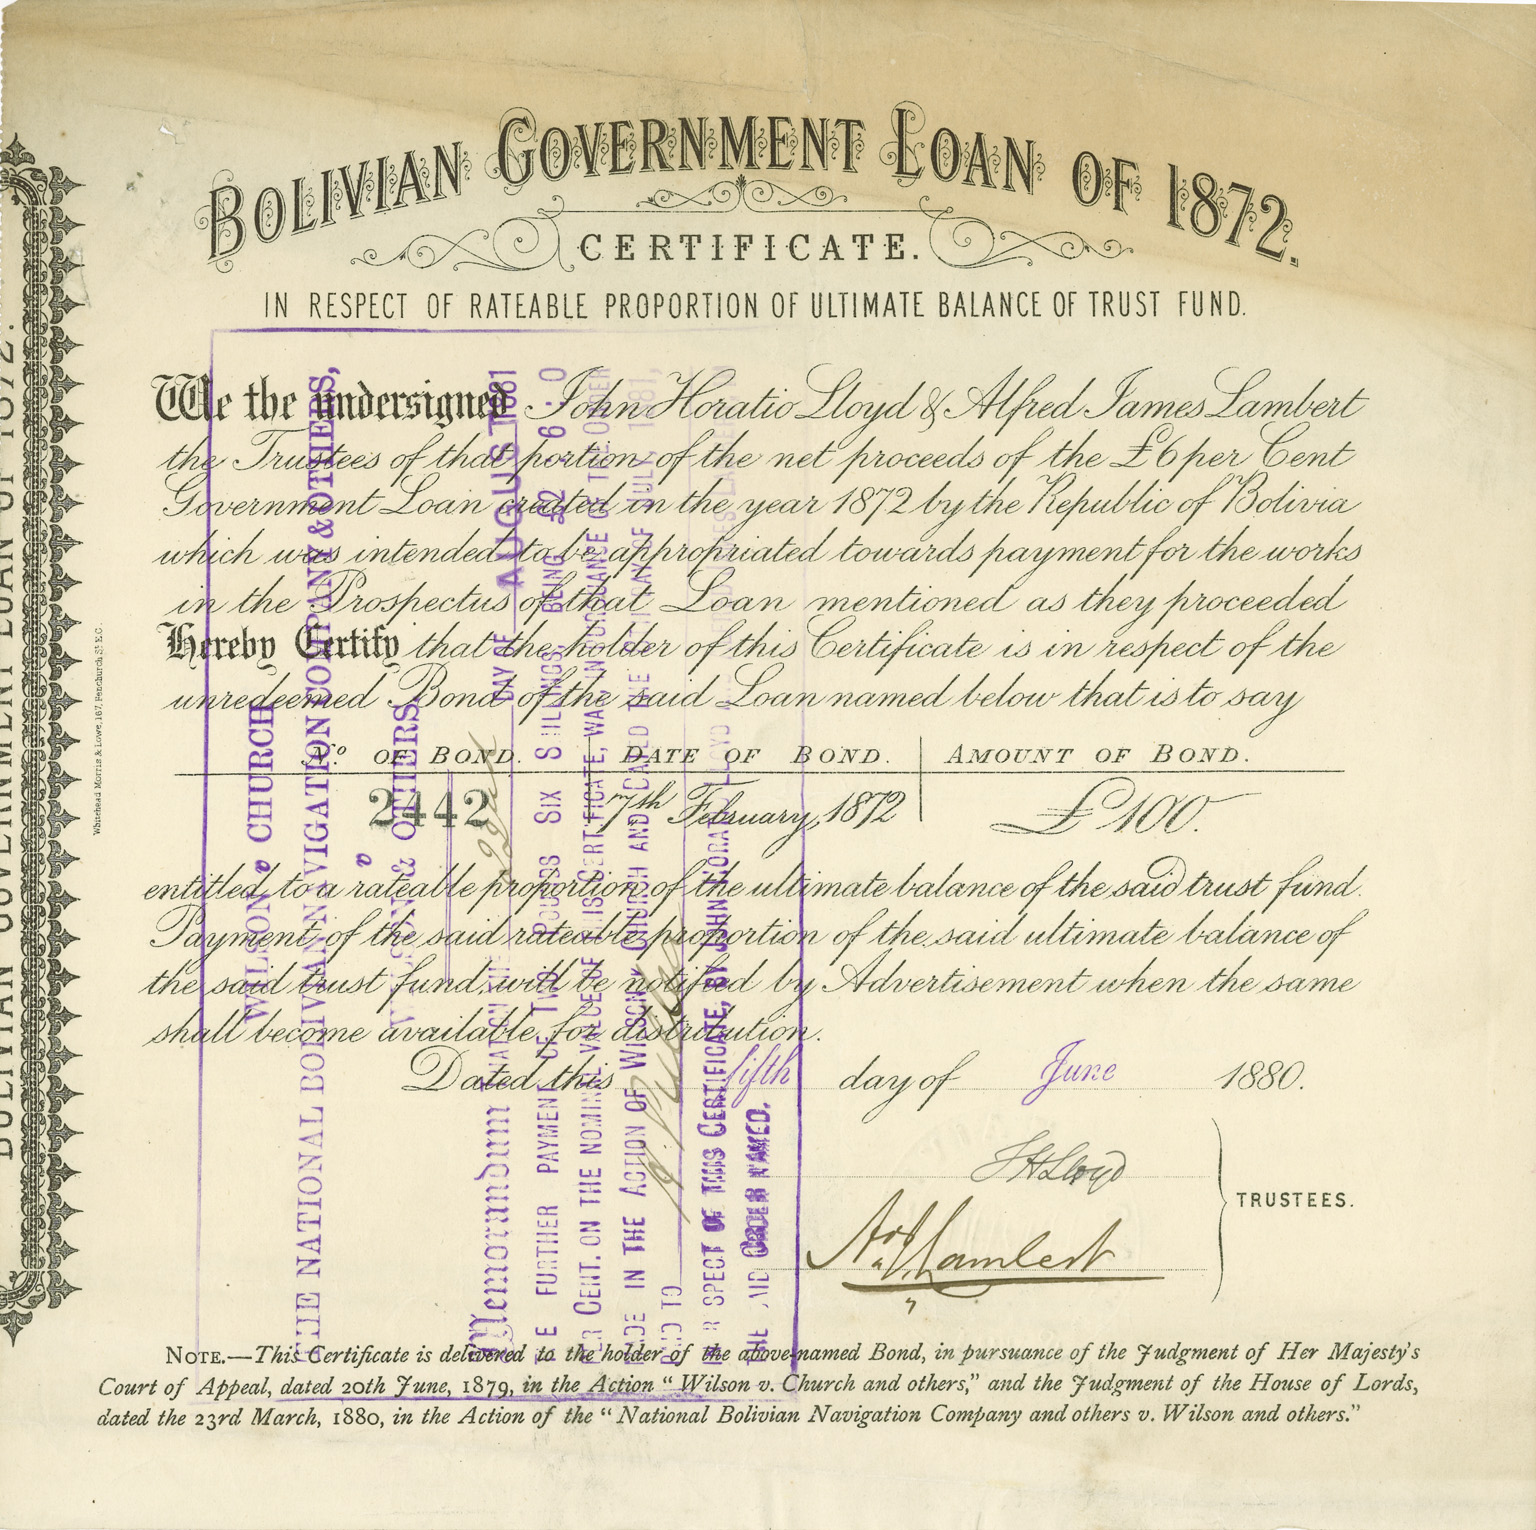 BOLIVIAN GOVERNMENT LOAN OF 1872.
CERTIFICATE.
IN RESPECT OF RATEABLE PROPORTION OF ULTIMATE BALANCE OF TRUST FUND.
We the undersigned John Horatio Lloyd & Alfred James Lambert
the Trustees of that portion of the net proceeds of the £6 per Cent
Government Loan created in the year 1872 by the Republic of Bolivia
which was intended to be appropriated towards payment for the works
in the Prospectus of that Loan mentioned as they proceeded
Hereby Certify that the holder of this Certificate is in respect of the
unredeemed Bond of the said Loan named below that is to say
No. OF BOND. DATE OF BOND. AMOUNT OF BOND.
2442 7th February, 1872 £100.
entitled to a rateable proportion of the ultimate balance of the said trust fund.
Payment of the said rateable proportion of the said ultimate balance of
the said trust fund, will be notified by Advertisement when the same
shall become available for distribution.
Dated this fifth day of June 1880.
J H Lloyd
A. J. Lambert
TRUSTEES.
NOTE.—This Certificate is delivered to the holder of the above-named Bond, in pursuance of the Judgment of Her Majesty's
Court of Appeal, dated 20th June, 1879, in the Action “Wilson v. Church and others,” and the Judgment of the House of Lords,
dated the 23rd March, 1880, in the Action of the “National Bolivian Navigation Company and others v. Wilson and others.”
BOLIVIAN GOVERNMENT LOAN OF 1872.
Whitehead Morris & Lowe, 167, Fenchurch St. E.C.
WILSON v CHURCH
THE NATIONAL BOLIVIAN NAVIGATION COMPANY & OTHERS,
v
WILSON & OTHERS
Memorandum DAY OF AUGUST 1881
FURTHER PAYMENT OF TWO POUNDS SIX SHILLINGS, BEING £2 6 0
PER CENT. ON THE NOMINAL VALUE OF THIS CERTIFICATE, WAS IN PURSUANCE OF THE ORDER
MADE IN THE ACTION OF WILSON v CHURCH AND DATED THE DAY OF JULY, 1881,
PAID TO
IN RESPECT OF THIS CERTIFICATE, BY JOHN HORATIO LLOYD
THE SAID ORDER NAMED.